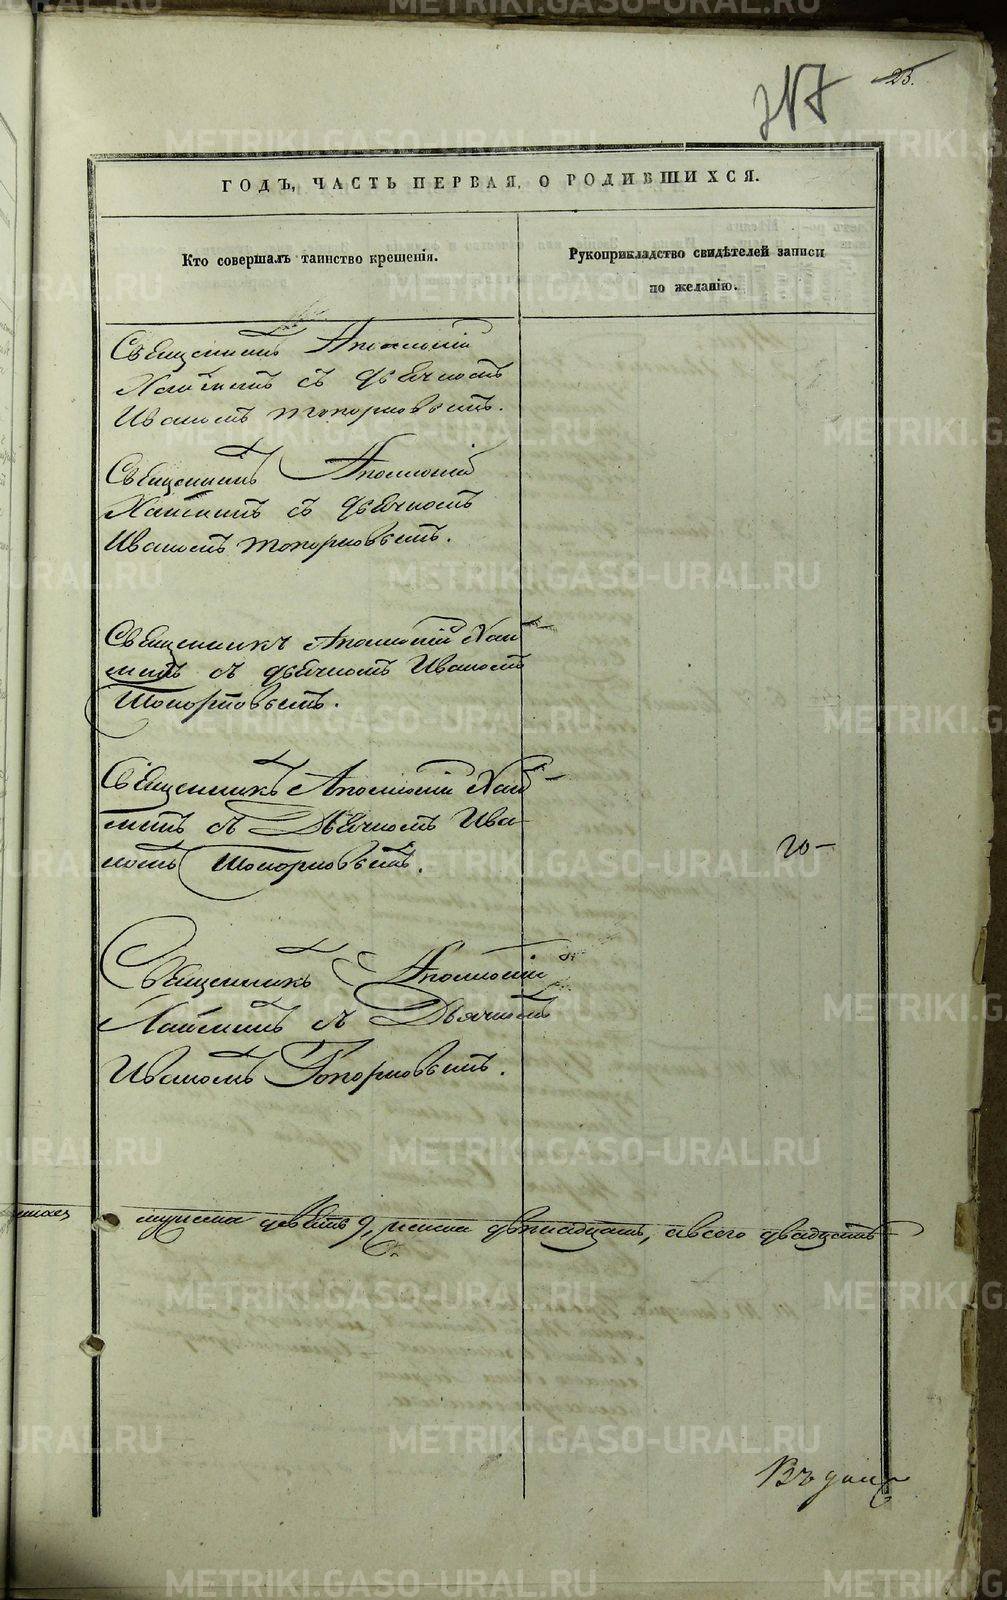 23.
317
ГОДЪ, ЧАСТЬ ПЕРВАЯ, О РОДИВШИХСЯ.
Кто совершалъ таинство крещенія.
Рукоприкладство свидѣтелей записи
по желанію.
Священникъ Аполлоній
съ дьячкомъ
Иваномъ Топорковымъ.
Священникъ Аполлоній
съ дьячкомъ
Иваномъ Топорковымъ.
Священникъ Аполлоній
съ дьячкомъ Иваномъ
Топорковымъ.
Священникъ Аполлоній
съ Дьячкомъ Ива-
номъ Топорковымъ.
20-
Священникъ Аполлоній
съ Дьячкомъ
Иваномъ Топорковымъ.
мужска девять 9, женска а всего двадцать
METRIKI.GASO-URAL.RU